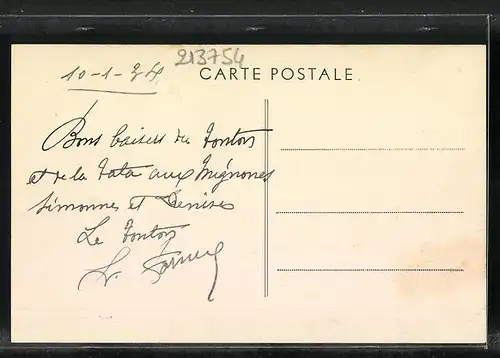 213754
10-1-34
CARTE POSTALE
Bons baisers du Tonton
et de la Tata aux Mignones
Simonnes et Denises
Le Tonton